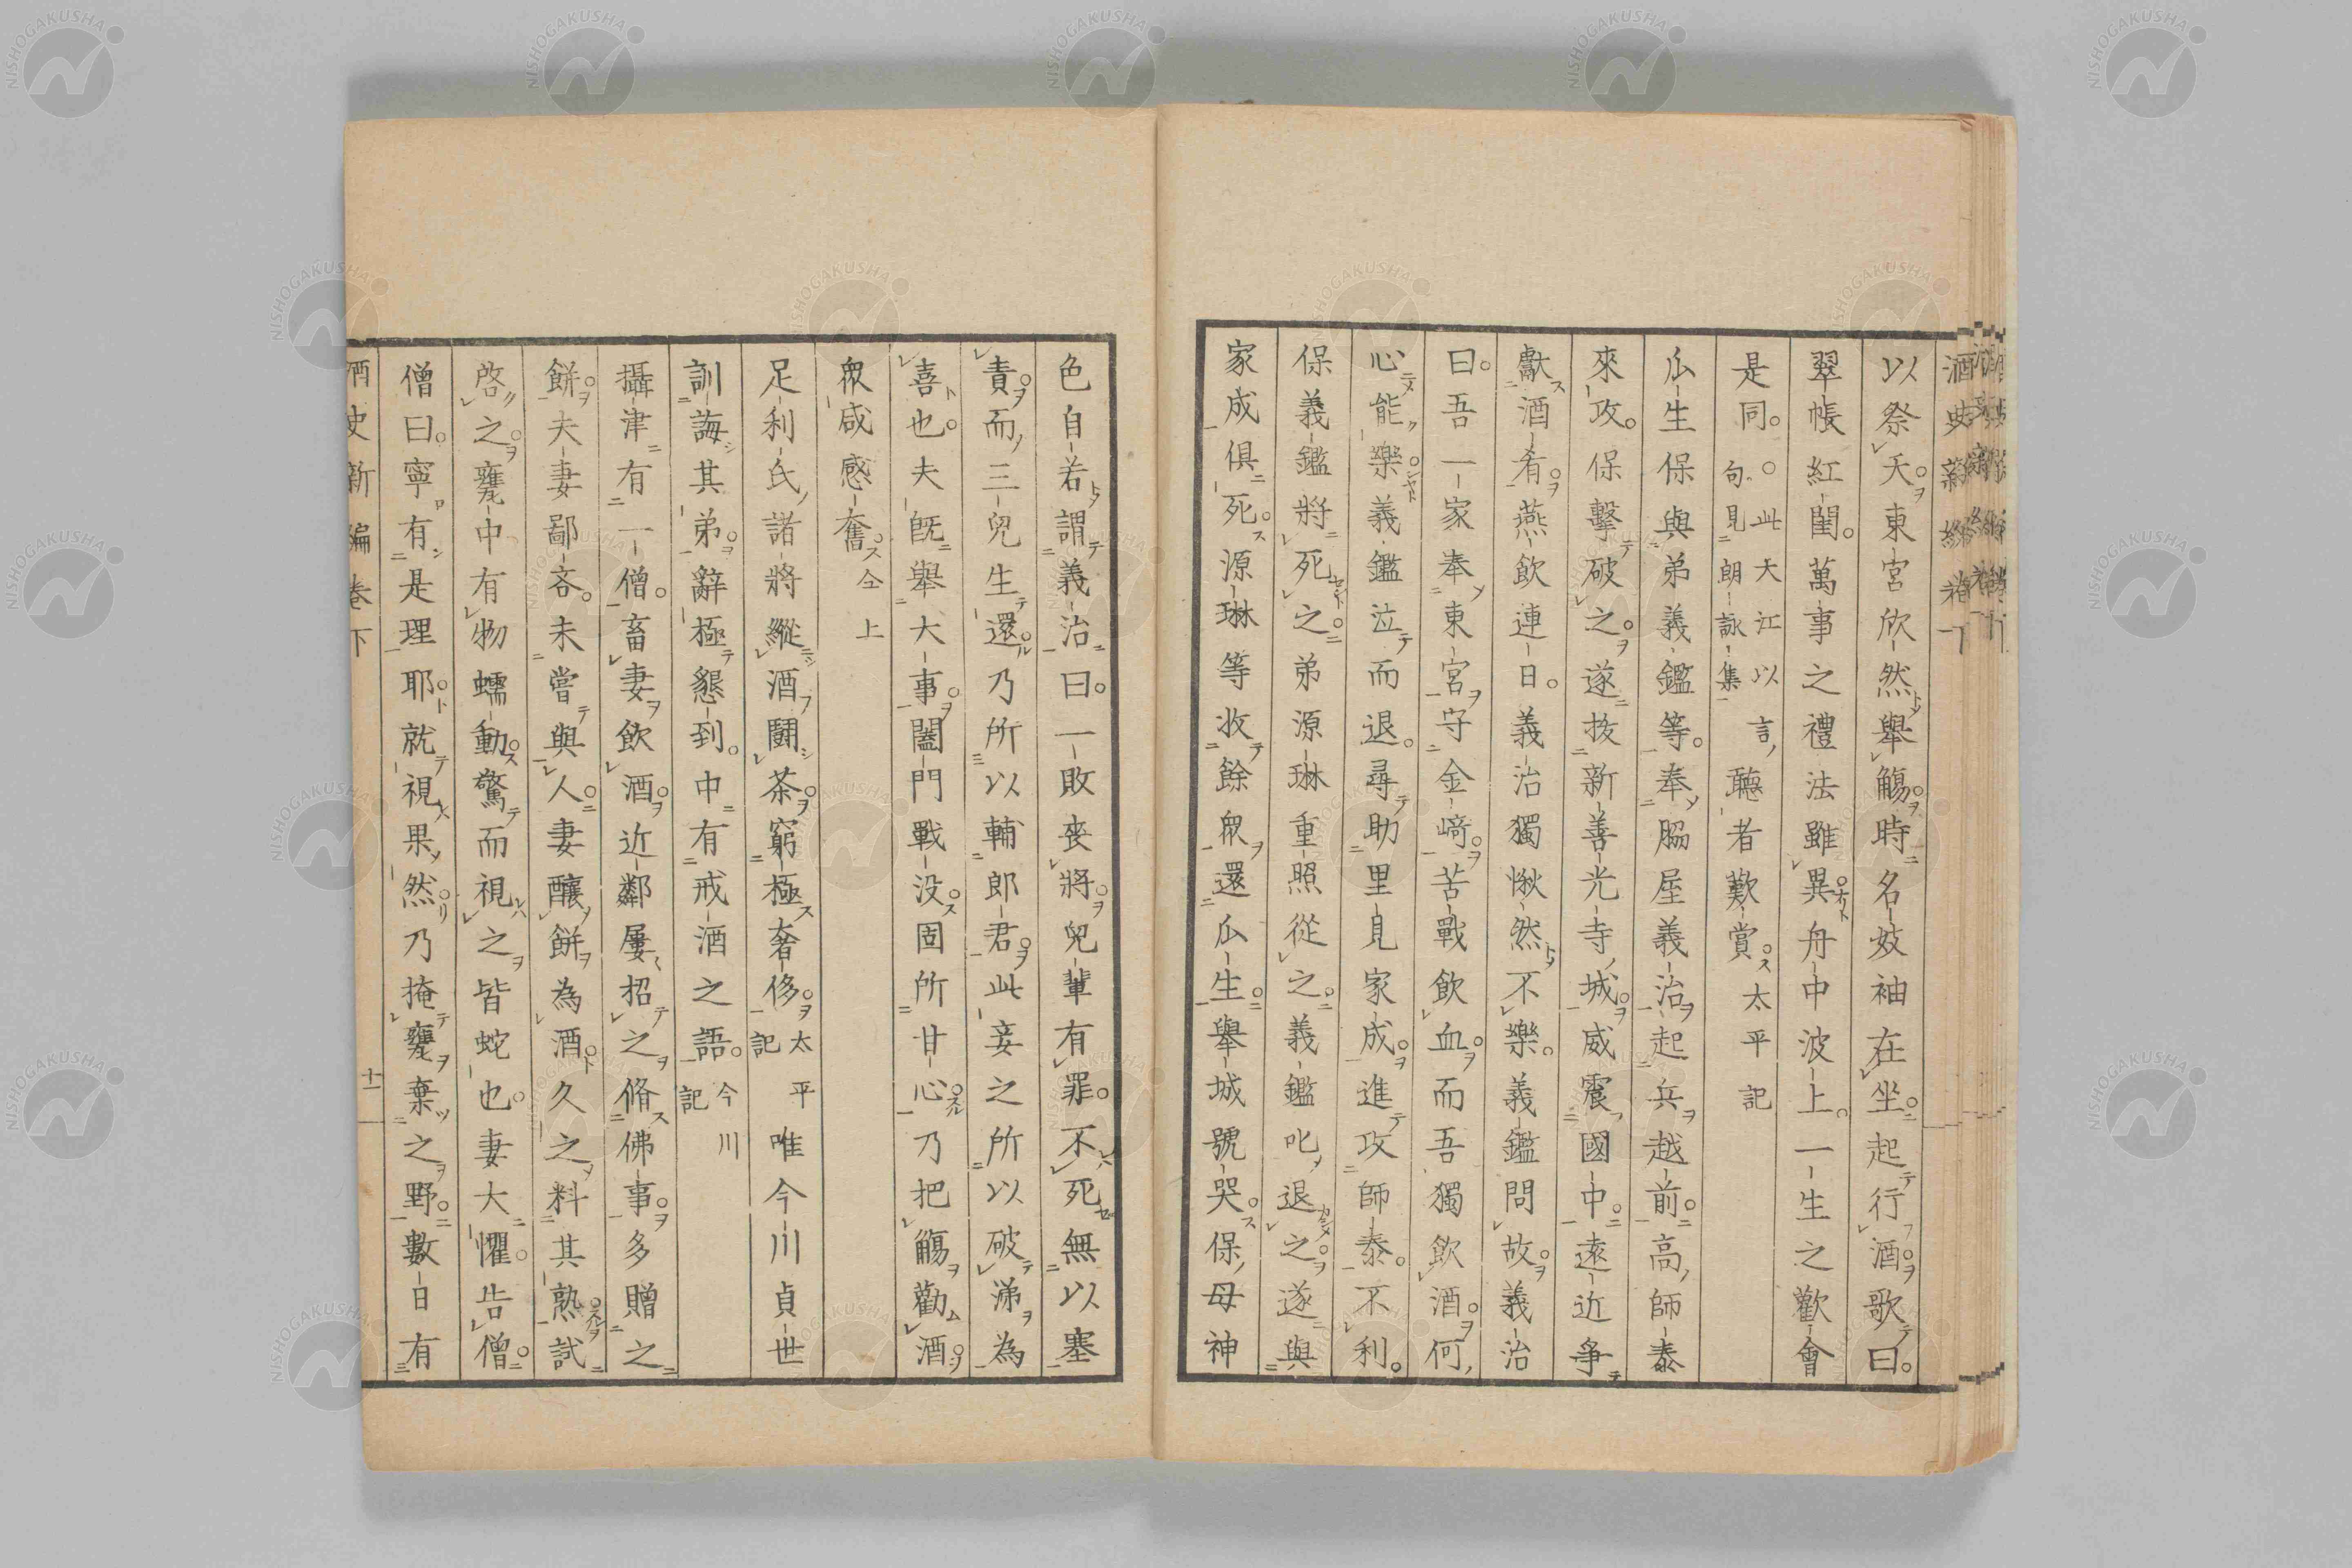 以祭天東宮欣然舉觴時名妓袖在坐起行酒歌曰
翠帳紅閨萬事之禮法雖異舟中波上一生之歡會
是同此天江以言句見朗詠集聽者歎賞太平記
瓜生保與弟義鑑等奉脇屋義治起兵越前高師泰
來攻保擊破之遂拔新善光寺城威震國中遠近爭
獻酒肴燕飲連日義治獨愀然不樂義鑑問故義治
曰吾一家奉東宮守金﨑苦戰飲血而吾獨飲酒何
心能樂義鑑泣而退尋助里見家成進攻師泰不利
保義鑑將死之弟源琳重照從之義鑑叱退之遂與
家成俱死源琳等收餘眾還瓜生舉城號哭保母神
色自若謂義治曰一敗喪將兒輩有罪不死無以塞
責而三兒生還乃所以輔郎君此妾之所以破涕為
喜也夫既舉大事闔門戰没固所甘心乃把觴勸酒
眾咸感奮仝上
足利氏諸將縱酒鬪茶窮極奢侈太平記唯今川貞世
訓誨其弟辭極懇到中有戒酒之語今川記
攝津有一僧畜妻飲酒近鄰屢招之脩佛事多贈之
餅夫妻鄙吝未嘗與人妻釀餅為酒久之料其熟試
啓之甕中有物蠕動驚而視之皆蛇也妻大懼告僧
僧曰寧有是理耶就視果然乃掩甕棄之野數日有
酒史新編卷下
十一